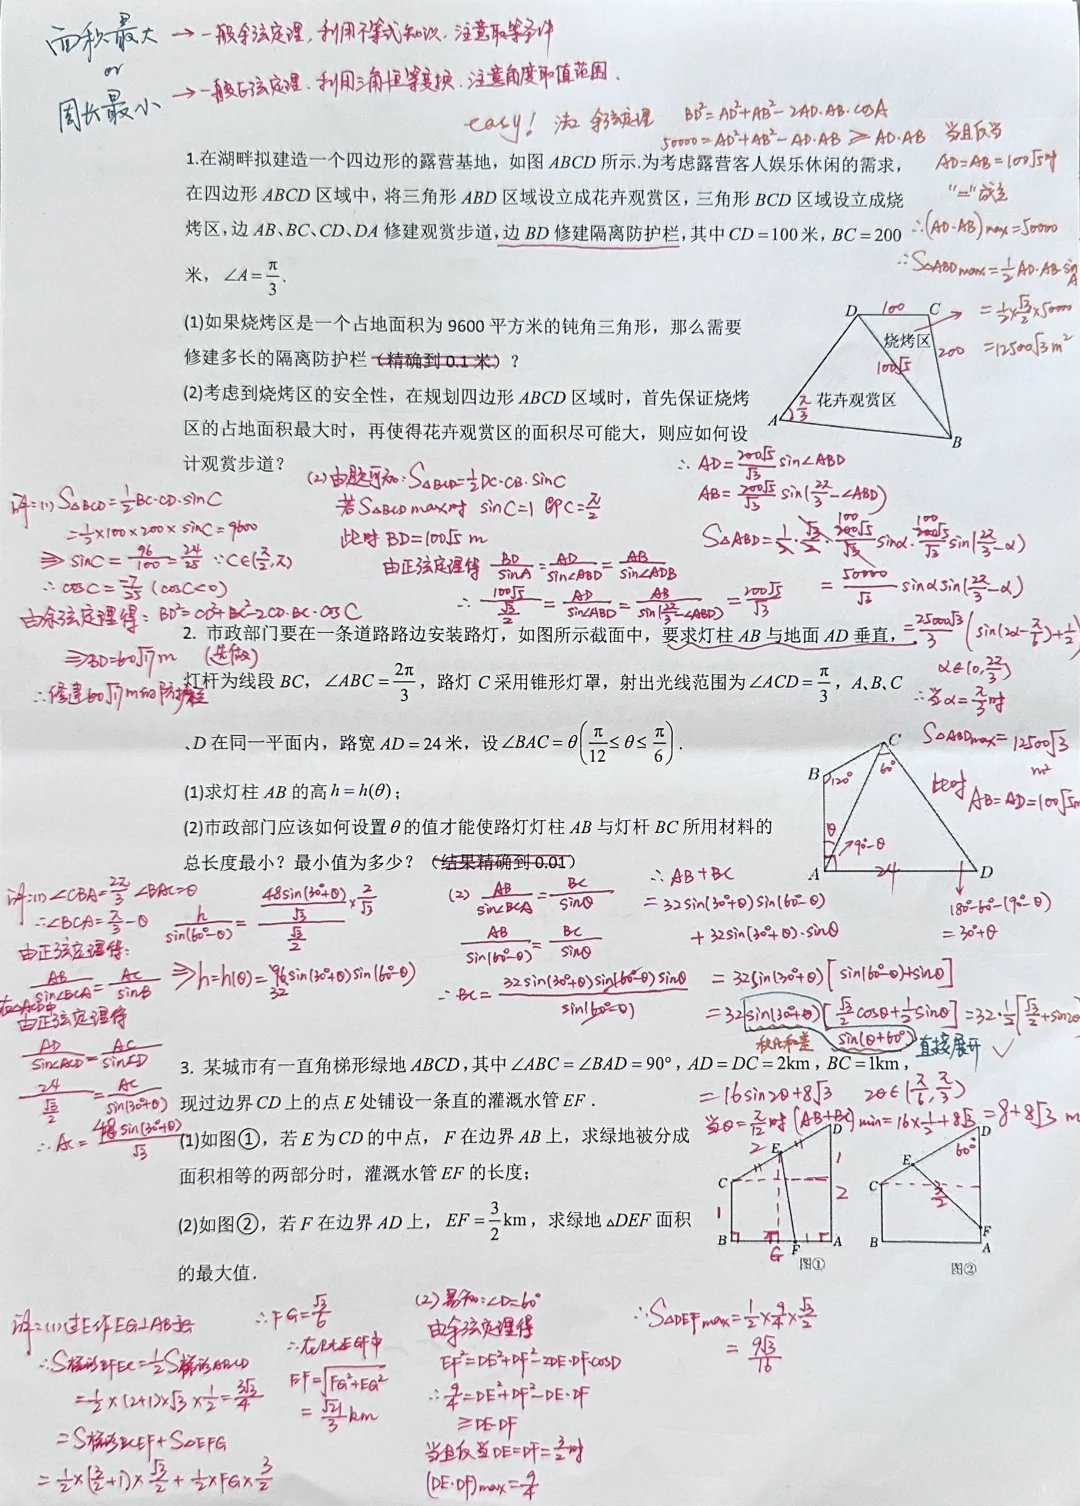 面积最大 → 一般余弦定理,利用不等式知识.注意取等条件
or
周长最小 → 一般正弦定理.利用三角恒等变换.注意角度取值范围.
easy! 法2 余弦定理 BD²=AD²+AB²-2AD·AB·cosA
50000=AD²+AB²-AD·AB ≥ AD·AB 当且仅当
AD=AB=100√5时
"="成立
∴(AD·AB)max=50000
∴S△ABDmax=½AD·AB·sinA
=½×√3/2×50000
=12500√3 m²
1.在湖畔拟建造一个四边形的露营基地，如图 ABCD 所示.为考虑露营客人娱乐休闲的需求，
在四边形 ABCD 区域中，将三角形 ABD 区域设立成花卉观赏区，三角形 BCD 区域设立成烧
烤区,边 AB、BC、CD、DA 修建观赏步道,边 BD 修建隔离防护栏,其中 CD=100米，BC=200
米，∠A=π/3.
(1)如果烧烤区是一个占地面积为 9600 平方米的钝角三角形，那么需要
修建多长的隔离防护栏（精确到 0.1 米）？
(2)考虑到烧烤区的安全性，在规划四边形 ABCD 区域时，首先保证烧烤
区的占地面积最大时，再使得花卉观赏区的面积尽可能大，则应如何设
计观赏步道？
D 100 C
烧烤区
200
100√5
π/3 花卉观赏区
A
B
解:(1) S△BCD=½BC·CD·sinC
=½×100×200×sinC=9600
⇒ sinC=96/100=24/25 ∵C∈(π/2,π)
∴cosC=-7/25 (cosC<0)
由余弦定理得: BD²=CD²+BC²-2CD·BC·cosC
⇒BD=60√17 m
∴修建60√17m的防护栏
(2)由题可知:S△BCD=½DC·CB·sinC
若S△BCD max时 sinC=1 即C=π/2
此时 BD=100√5 m
由正弦定理得 BD/sinA=AD/sin∠ABD=AB/sin∠ADB
∴ 100√5/(√3/2)=AD/sin∠ABD=AB/sin(2π/3-∠ABD)=200√5/√3
∴AD=200√5/√3 sin∠ABD
AB=200√5/√3 sin(2π/3-∠ABD)
S△ABD=½·√3/2·200√5/√3 sinα·200√5/√3 sin(2π/3-α)
100 100
=50000/√3 sinα sin(2π/3-α)
=25000√3/3 (sin(2α-π/6)+½)
α∈(0,2π/3)
∴当α=π/3时
S△ABDmax=12500√3
m²
此时
AB=AD=100√5m
2. 市政部门要在一条道路路边安装路灯，如图所示截面中，要求灯柱 AB 与地面 AD 垂直，
(选做)
灯杆为线段 BC，∠ABC=2π/3，路灯 C 采用锥形灯罩，射出光线范围为∠ACD=π/3，A、B、C
、D 在同一平面内，路宽 AD=24 米，设∠BAC=θ(π/12≤θ≤π/6).
(1)求灯柱 AB 的高 h=h(θ)；
(2)市政部门应该如何设置θ的值才能使路灯灯柱 AB 与灯杆 BC 所用材料的
总长度最小？最小值为多少？（结果精确到 0.01）
C
B 120° 60°
θ
90°-θ
A 24 D
180°-60°-(90°-θ)
=30°+θ
解:(1) ∠CBA=2π/3 ∠BAC=θ
∴∠BCA=π/3-θ
由正弦定理得:
AB/sin∠BCA=AC/sinB
在△ACD中
由正弦定理得
AD/sin∠ACD=AC/sin∠D
24/(√3/2)=AC/sin(30°+θ)
∴AC=48sin(30°+θ)/√3
h/sin(60°-θ)=48sin(30°+θ)/√3/(√3/2) ×2/√3
⇒h=h(θ)=32sin(30°+θ)sin(60°-θ)
(2) AB/sin∠BCA=BC/sinθ
AB/sin(60°-θ)=BC/sinθ
∴BC=32sin(30°+θ)sin(60°-θ)sinθ/sin(60°-θ)
∴AB+BC
=32sin(30°+θ)sin(60°-θ)
+32sin(30°+θ)·sinθ
=32sin(30°+θ)[sin(60°-θ)+sinθ]
=32sin(30°+θ)[√3/2cosθ+½sinθ]=32·½[√3/2+sin2θ]
积化和差 sin(θ+60°) 直接展开
=16sin2θ+8√3 2θ∈(π/6,π/3)
当θ=π/12时 (AB+BC)min=16×½+8√3=8+8√3 m
3. 某城市有一直角梯形绿地 ABCD,其中∠ABC=∠BAD=90°，AD=DC=2km，BC=1km，
现过边界 CD 上的点 E 处铺设一条直的灌溉水管 EF．
(1)如图①，若 E 为 CD 的中点，F 在边界 AB 上，求绿地被分成
面积相等的两部分时，灌溉水管 EF 的长度；
(2)如图②，若 F 在边界 AD 上，EF=3/2km，求绿地△DEF 面积
的最大值．
D
2 E 1
C
2
1
B G F A
图①
D
60°
E
C
3/2
F
B A
图②
解:(1)过E作EG⊥AB于G
∴S梯形BFEC=½S梯形ABCD
=½×(2+1)×√3×½=3√3/4
=S梯形BCEG+S△EFG
=½×(3/2+1)×√3/2+½×FG×3/2
∴FG=√3/6
∴在Rt△EGF中
EF=√(FG²+EG²)
=√21/3 km
(2)易知:∠D=60°
由余弦定理得
EF²=DE²+DF²-2DE·DF·cosD
∴9/4=DE²+DF²-DE·DF
≥DE·DF
当且仅当DE=DF=3/2时
(DE·DF)max=9/4
∴S△DEFmax=½×9/4×√3/2
=9√3/16